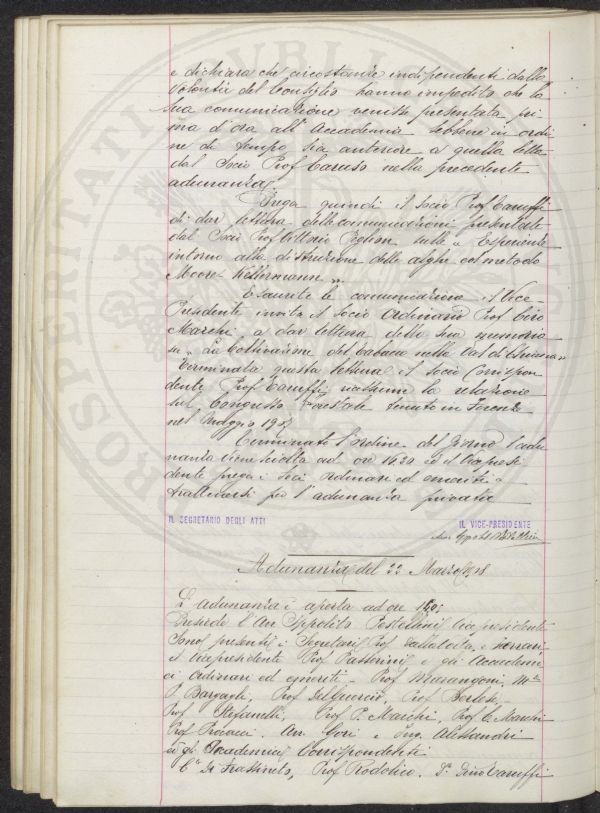 e dichiara che circostanze indipendenti dalla
volontà del Consiglio hanno impedito che la
sua comunicazione venisse presentata pri
ma d'ora all'Accademia sebbene in ordi
ne di tempo sia anteriore a quella letta
dal Socio Prof Caruso nella precedente
adunanza.
Prega quindi il Socio Prof Caruffi
di dar lettura delle comunicazioni presentate
dal Socio Prof Vittorio Peglion sulle "Esperienze
intorno alla distruzione delle alghe col metodo
Moore-Kellermann"
Esaurite le comunicazioni il Vice-
Presidente invita il socio Ordinario Prof Ciro
Marchi a dar lettura della sua memoria
su "La Coltivazione del tabacco nella Val di Chiana"
Terminata questa lettura il Socio Corrispon
dente Prof Caruffi riassume la relazione
sul Congresso Forestale tenuto in
nel Maggio
Terminato l'ordine del Giorno l'adu
nanza viene sciolta ad ore 16,30 ed il Vicepresi
dente prega i soci ordinari ed emeriti a
trattenersi per l'adunanza privata
IL SEGRETARIO DEGLI ATTI
IL VICE-PRESIDENTE
Adunanza del 22 Marzo
L'adunanza è aperta ad ore
Presiede l'Avv Ippolito Pestellini Vicepresidente
Sono presenti i Segretari Prof e
il Vicepresidente Prof Passerini e gli Accademi
ci ordinari ed emeriti - Prof Marangoni, Mse
P. Bargagli, Prof Del Guercio, Prof Berlese,
Prof Stefanelli, Prof P. Marchi, Prof C. Marchi
Prof Avv. Gori e Ing. Alessandri
e gli Accademici Corrispondenti
Cte Di Frassineto, Prof Rodolico. Dr Dino Caruffi
PROSPERITATI
PVBLIC